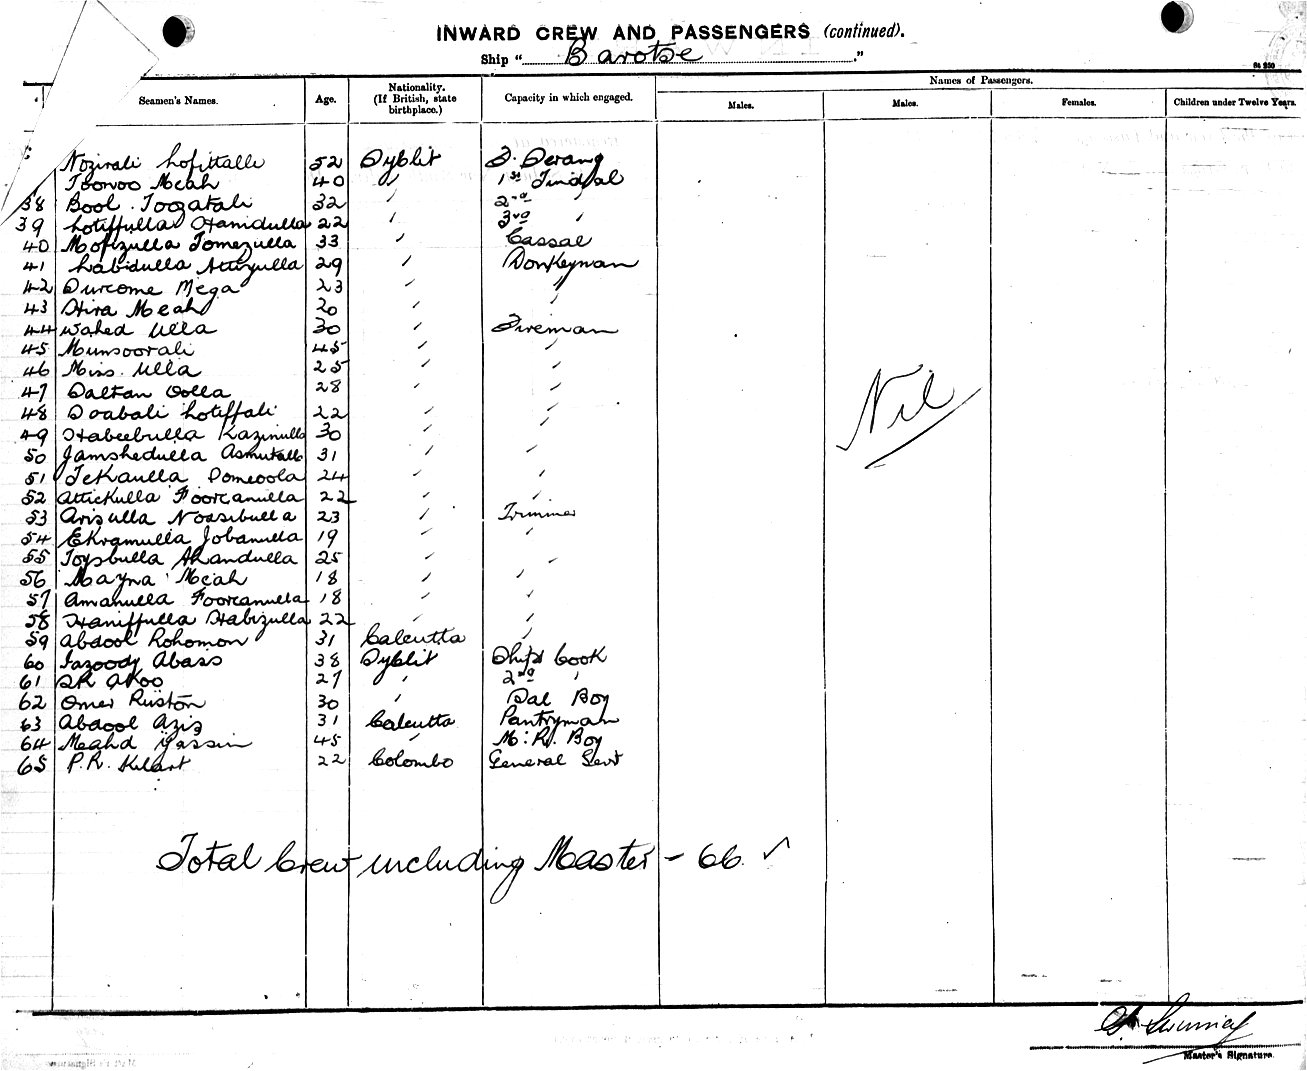 INWARD CREW AND PASSENGERS (continued).
Ship "Barotse"
84 250
Seamen's Names. Age. Nationality. (If British, state birthplace.) Capacity in which engaged. Names of Passengers.
Males. Males. Females. Children under Twelve Years.
Nozirali 52 Syblit S. Serang
Toowoo Meah 40 " 1st Tindal
38 Bool Toozatali 32 " 2nd "
39 Lotiffulla Hamidulla 22 " 3rd "
40 Mofizulla Tomezulla 33 " Cassal
41 Labidulla 29 " Donkeyman
42 Surcome Mega 23 " "
43 Hira Meah 20 " "
44 Wahed Ulla 30 " Fireman
45 Munsoorali 45 " "
46 Miss. Ulla 25 " "
47 Saltan Oolla 28 " "
48 Soabali Lotiffali 22 " "
49 Habeebulla Kazinulla 30 " "
50 Jamshedulla Asmutalla 31 " "
51 Tekaulla Someoola 24 " "
52 Attickulla Foorcanulla 22 " "
53 Arisulla Nossibulla 23 " Trimmer
54 Ekramulla Jobanulla 19 " "
55 Toysbulla Ahandulla 25 " "
56 Mayna Meah 18 " "
57 Amanulla Foorcanulla 18 " "
58 Haniffulla Habizulla 22 " "
59 Abdool Rohomon 31 Calcutta "
60 Fazoody Abass 38 Syblit Ship's Cook
61 SK Akoo 27 " 2nd "
62 Omer Ruston 30 " Sal Boy
63 Abdool Aziz 31 Calcutta Pantryman
64 Meahd Yassin 45 " M. R. Boy
65 P.R. 22 Colombo General Servt
Nil
Total Crew including Master - 66. ✓
Master's Signature.